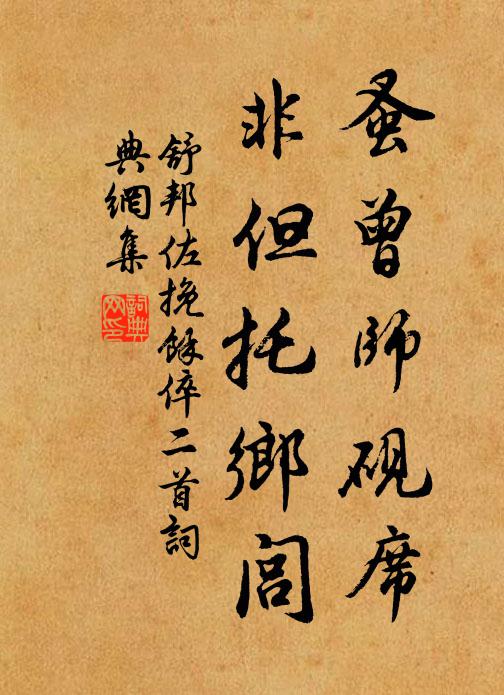 蚤曾師硯席
非但托鄉閭
舒邦佐挽餘倅二首詞
典網集
詞典
网印